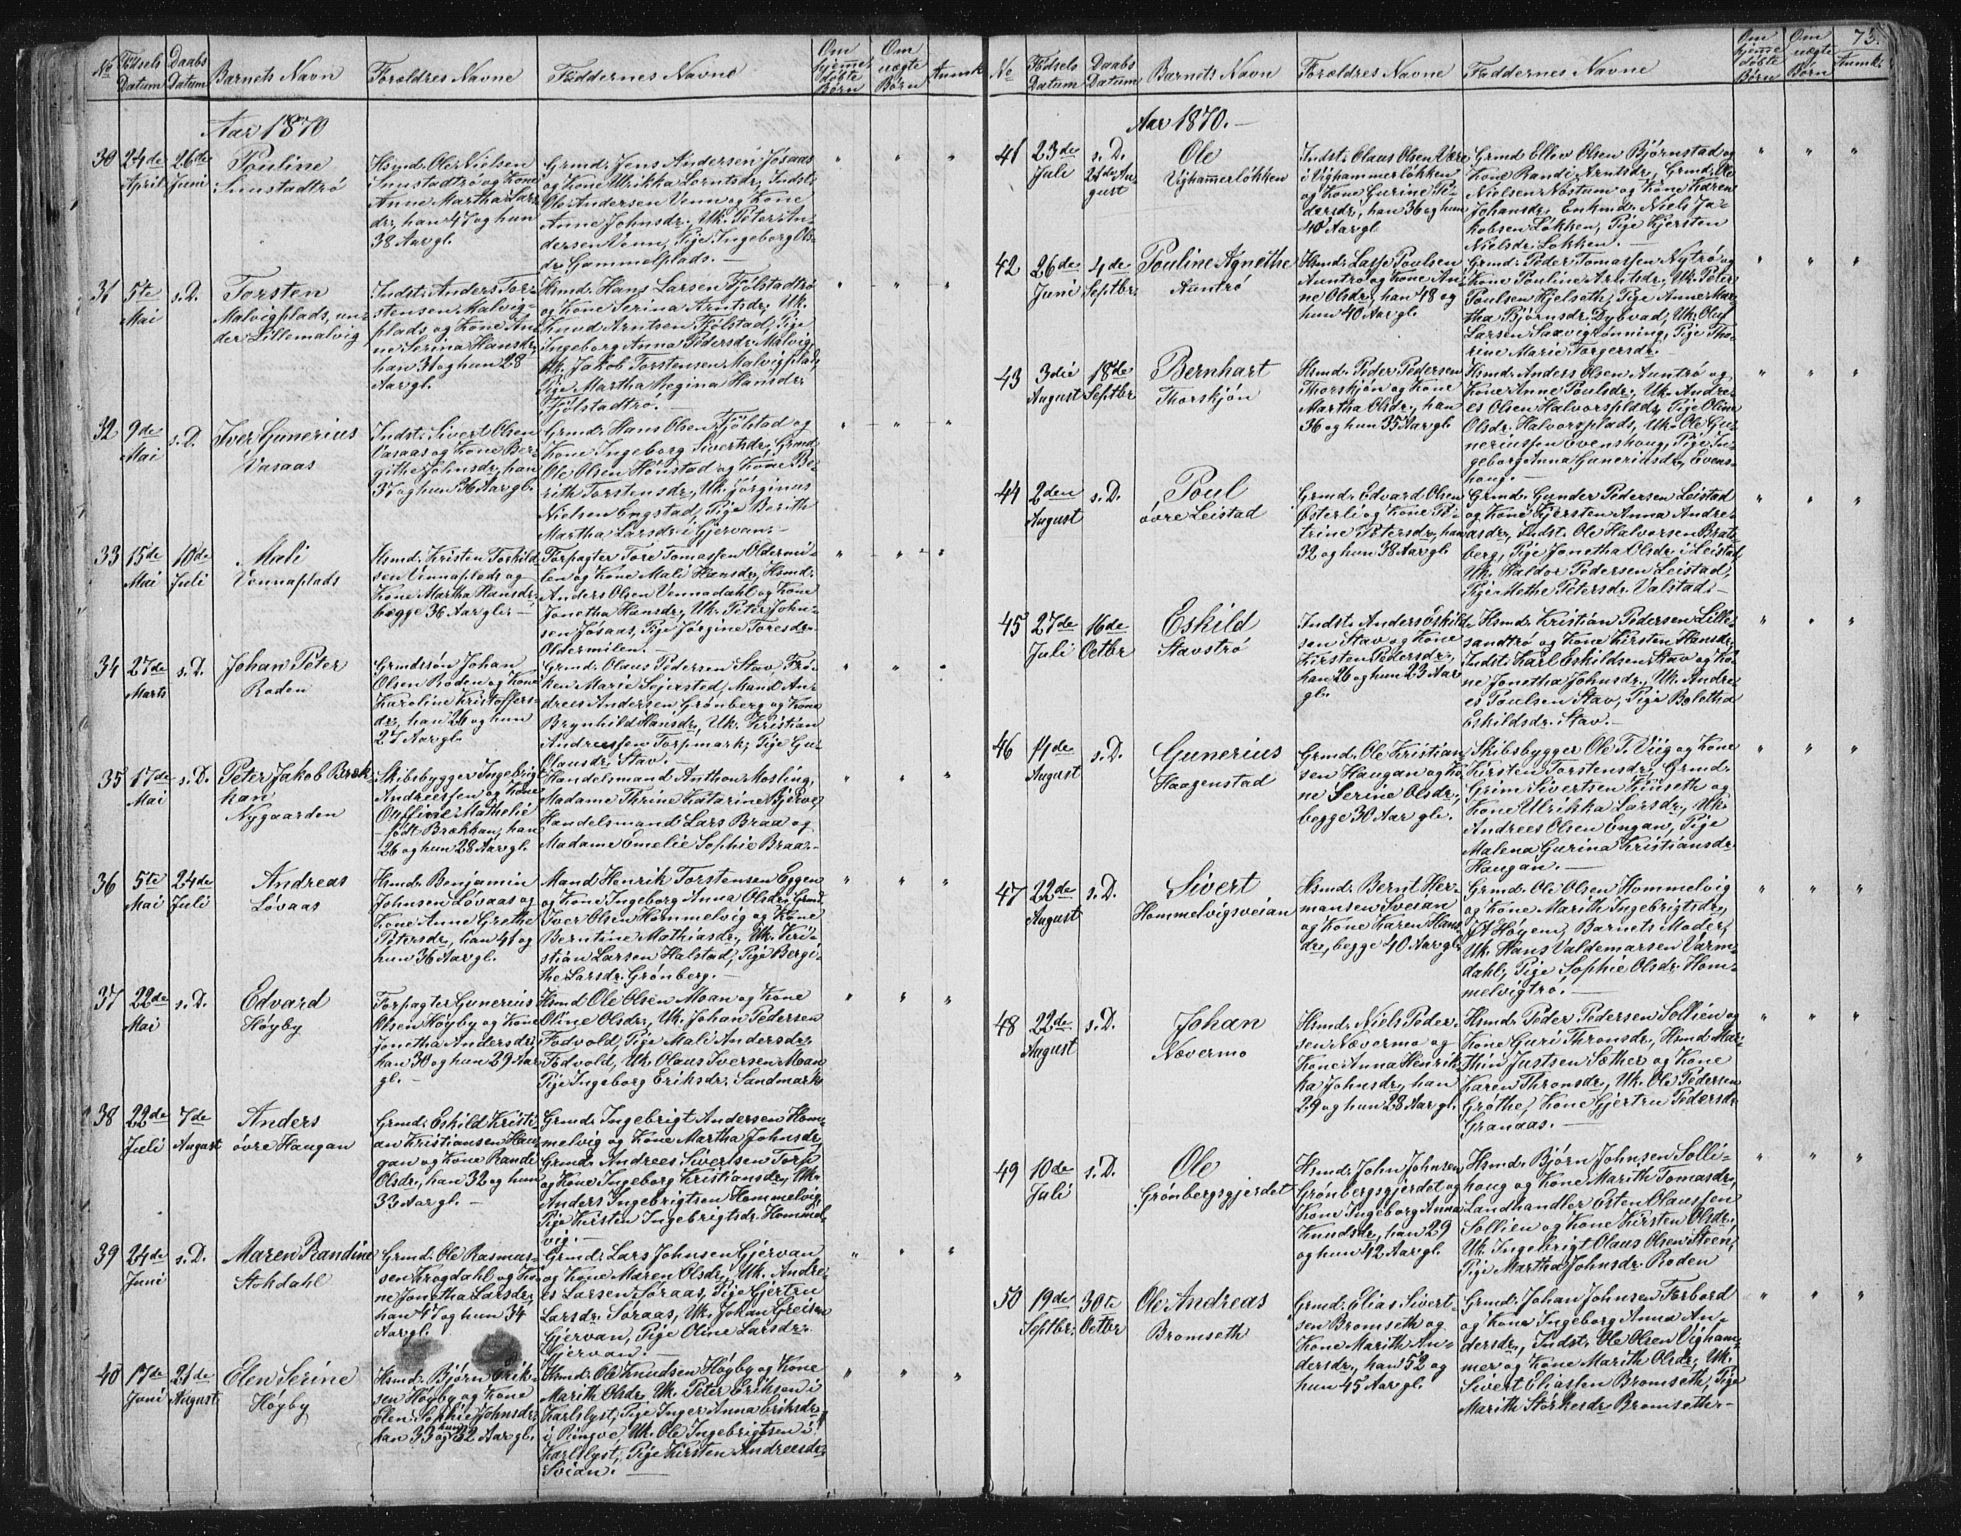 No
Fødsels Datum
Daabs Datum
Barnets Navn
Forældres Navne
Faddernes Navne
Om hjemmedøbte Børn
Om uægte Børn
Anmk.
Aar 1870
30
24de April
26de Juni
Pauline
Hsmd: Ole Nielsen
og Kone
Anne Martha Lars-
dr, han 47 og hun
38 Aar gl.
Grmd: Jens Andersen Jøsaas
og Kone Ulrikka Lorntsdr, Indst:
Ole Andersen Venn og Kone
Anne Johnsdr, Uk: Peter An-
dersen Venn, Pige Ingeborg Ols-
dr Gammelplads. —
31
5te Mai
s. D.
Torsten
Malvigplads, un-
der Lillemalvig
Indst: Anders Tor-
stensen Malvig-
plads og Kone An-
ne Serina Hansdr,
han 31 og hun 28
Aar gl.
Hsmd: Hans Larsen Fjølstadtrø
og Kone Serina Arntsdr, Uk:
Knud Arntsen Fjølstad, Pige
Ingeborg Anna Pedersdr Malvig,
Uk: Jakob Torstensen Malvigplads,
Pige Martha Regina Hansdr
Fjølstadtrø. —
32
9de Mai
s. D.
Iver Gunerius
Vasaas
Indst: Sivert Olsen
Vasaas og Kone Ber-
githe Johnsdr, han
37 og hun 36 Aar gl.
Grmd: Hans Olsen Fjølstad og
Kone Ingeborg Sivertsdr, Grmd:
Ole Olsen Hønstad og Kone Be-
rith Torstensdr, Uk: Jørginus
Nielsen Engstad, Pige Berith
Martha Larsdr i Gjervan. —
33
15de Mai
10de Juli
Mali
Vennaplads
Hsmd: Kristen Torkild-
sen Vennaplads og
Kone Martha Hansdr,
begge 36 Aar gl. —
Forpagter Tore Tomassen Oldermi-
len og Kone Mali Hansdr, Hsmd:
Anders Olsen Vennadahl og Kone
Jonetha Hansdr, Uk: Peter John-
sen Jøsaas, Pige Jørgine Toresdr
Oldermilen. —
34
27de Marts
s. D.
Johan Peter
Roden
Grmdssøn Johan
Olsen Roden og Kone
Karoline Kristoffers-
dr, han 26 og hun
27 Aar gl.
Grmd: Olaus Pedersen Stav, Frø-
ken Marie Sejersted, Mand An-
drees Andersen Grønberg og Kone
Brynhild Hansdr, Uk: Kristian
Andreessen Torpmark, Pige Gu-
Olausdr Stav. —
35
17de Mai
s. D.
Peter Jakob Bræk-
kan
Nygaarden
Skibsbygger Ingebrigt
Andreessen og Kone
Mathelie
født Brækkan, han
26 og hun 28 Aar gl.
Handelsmand Anthon Mosling,
Madame Thrine Katarine Bjerve
Handelsmand Lars Braa og
Madame Emelie Sophie Braa. —
36
5te Mai
24de Juli
Andreas
Løvaas
Hsmd: Benjamin
Johnsen Løvaas og
Kone Anne Grethe
Petersdr, han 41 og
hun 36 Aar gl.
Mand Henrik Torstensen Eggen
og Kone Ingeborg Anna Olsdr, Grmd:
Iver Olsen Hommelvig og Kone
Berntine Mathiasdr, Uk: Kri-
stian Larsen Halstad, Pige Bergi-
the Larsdr Grønberg. —
37
22de Mai
s. D.
Edvard
Høyby
Forpagter Gunerius
Olsen Høyby og Kone
Jonetha Andersdr,
han 30 og hun 29 Aar
gl. —
Hsmd: Ole Olsen Moan og Kone
Oline Olsdr, Uk: Johan Pedersen
Fodvold, Pige Mali Andersdr
Fodvold, Uk: Olaus Iversen Moan
Pige Ingeborg Eriksdr Sandmark
38
22de Juli
7de August
Anders
øvre Haugan
Grmd: Eskild Kristi-
an Kristiansen Hau-
gan og Kone Randi
Olsdr, han 32 og hun
33 Aar gl. —
Grmd: Ingebrigt Andersen Hom-
melvig og Kone Martha Johnsdr,
Grmd: Andrees Sivertsen Torp
og Kone Ingeborg Kristiansdr, Uk:
Anders Ingebrigtsen Hommelvig
Pige Kirsten Ingebrigtsdr Hommel-
vig. —
39
24de Juni
s. D.
Maren Randine
Stokdahl
Grmd: Ole Rasmus-
sen Krogdahl og Ko-
ne Jonetha Larsdr,
han 47 og hun 34
Aar gl.
Grmd: Lars Johnsen Gjervan
og Kone Maren Olsdr, Uk: Andre-
es Larsen Søraas, Pige Gjertru
Larsdr Søraas, Uk: Johan Greisen
Gjervan, Pige Oline Larsdr
Gjervan. —
40
17de Juni
21de August
Elen Serine
Høyby
Hsmd: Bjørn Erik-
sen Høyby og Kone
Elen Sophie Johnsdr,
han 33 og hun 32 Aar gl.
Hsmd: Ole Knudsen Høyby og Kone
Marith Olsdr, Uk: Peter Eriksen i
Karlslyst, Pige Inger Anna Eriksdr
i Pungve, Uk: Ole Ingebrigtsen i
Karlslyst, Pige Kirsten Andreesdr
Sveian. —
73.
No
Fødsels Datum
Daabs Datum
Barnets Navn
Forældres Navne
Faddernes Navne
Om hjemmedøbte Børn
Om uægte Børn
Anmk.
Aar 1870. —
41
23de Juli
s. D.
August
Ole
Vighammerløkken
Indst: Claus Olsen Være
i Vighammerløkken
og Kone Gurine Pe-
dersdr, han 36 og hun
40 Aar gl
Grmd: Ellev Olsen Bjørnstad og
Kone Randi Arntsdr, Grmd: Ole
Nielsen Nostum og Kone Karen
Johansdr, Enkmd: Niels Ja-
kobsen Løkken, Pige Kjersten
Nielsdr Løkken. —
42
26de Juni
4de Septbr
Pouline Agnethe
Auntrø
Hsmd: Lasse Poulsen
Auntrø og Kone An-
ne Olsdr, han 48 og
hun 40 Aar gl.
Grmd: Peder Tomassen Nytrø og
Kone Pouline Arntsdr, Uk: Peter
Poulsen Hjelseth, Pige Anne Mar-
tha Bjørnsdr Dybvad, Uk: Oluf
Larsen Saxvigrønning, Pige Tho-
rine Marie Torgersdr. —
43
3die August
18de Septbr
Bernhart
Thorskjøn
Hsmd: Peder Pedersen
Thorskjøn og Kone
Martha Olsdr, han
36 og hun 35 Aar gl
Hsmd: Anders Olsen Auntrø og
Kone Anne Poulsdr, Uk: Andre-
es Olsen Halvorsplads, Pige Oline
Olsdr Halvorsplads, Uk: Ole Gu-
neriussen Evenshaug, Pige In-
geborg Anna Guneriusdr Evens-
haug. —
44
2den August
s. D.
Poul
øvre Leistad
Grmd: Edvard Olsen
Østerli og Kone Pe-
trine Petersdr, han
32 og hun 38 Aar gl
Grmd: Gunder Pedersen Leistad
og Kone Kjersten Anna Andre-
asdr, Indst: Ole Halvorsen Brat-
berg, Pige Jonetha Olsdr i Leistad
Uk: Haldor Pedersen Leistad,
Pige Methe Petersdr Valstad. —
45
27de Juli
16de Octbr
Eskild
Stavstrø
Indst: Anders Eskild-
sen Stav og Kone
Kirsten Pedersdr,
han 26 og hun 23 Aar
gl.
Hsmd: Kristian Pedersen Lille-
sandtrø og Kone Kirsten Hansdr,
Indst: Karl Eskildsen Stav og Ko-
ne Jonetha Johnsdr, Uk: Andre-
es Poulsen Stav, Pige Bolethe
Eskildsdr Stav. —
46
14de August
s. D.
Gunerius
Haagenstad
Grmd: Ole Kristian-
sen Haugan og Ko-
ne Serine Olsdr,
begge 30 Aar gl.
Skibsbygger Ole T. Viig og Kone
Kirsten Torstensdr, Grmd:
Grim Sivertsen Kinseth og
Kone Ulrikka Larsdr, Uk:
Andrees Olsen Engan, Pige
Malena Gurina Kristiansdr
Haugan. —
47
22de August
s. D.
Sivert
Hommelvigsveian
Hsmd: Bernt Her-
mansen Sveian
og Kone Karen Hans-
dr, begge 40 Aar gl.
Grmd: Ole Olsen Hommelvig
og Kone Marith Ingebrigtsdr,
Høyem, Barnets Moder,
Uk: Hans Valdemarsen Varm-
dahl, Pige Sophie Olsdr Hom-
melvigtrø. —
48
22de August
s. D.
Johan
Nævermo
Hsmd: Niels Peder-
sen Nævermo og
Kone Anna Henrik-
ka Johnsdr, han
29 og hun 28 Aar gl.
Hsmd: Peder Pedersen Sollien og
Kone Guri Thronsdr, Hsmd: Mar-
thin Justsen Sæther og Kone
Karen Thronsdr, Uk: Ole Pedersen
Grøthe, Kone Gjertru Pedersdr
Granaas. —
49
10de Juli
s. D.
Ole
Grønbergsgjerdet
Hsmd: John Johnsen
Grønbergsgjerdet og
Kone Ingeborg Anna
Knudsdr, han 29
og hun 42 Aar gl.
Hsmd: Bjørn Johnsen Solli-
haug og Kone Marith Tomasdr,
Landhandler Esten Olaussen
Sollien og Kone Kirsten Olsdr,
Uk: Ingebrigt Olaus Olsen Steen,
Pige Martha Johnsdr Roden
50
19de Septbr.
30te Octbr
Ole Andreas
Bromseth
Grmd: Elias Sivert-
sen Bromseth og
Kone Marith An-
dersdr, han 52 og
hun 45 Aar gl.
Grmd: Johan Johnsen Forbord
og Kone Ingeborg Anna An-
dersdr, Indst: Ole Olsen Vigham-
mer og Kone Marith Olsdr, Uk:
Sivert Eliassen Bromseth, Pige
Marith Størkesdr Bromseth. —